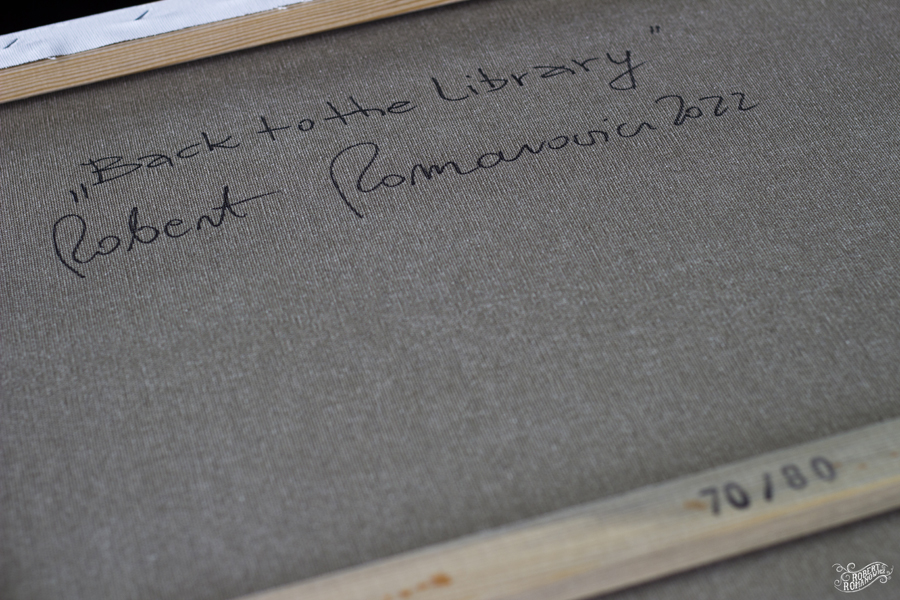 „Back to the Library”
Robert Romanovici 2022
70/80
ROBERT
ROMANOVICI